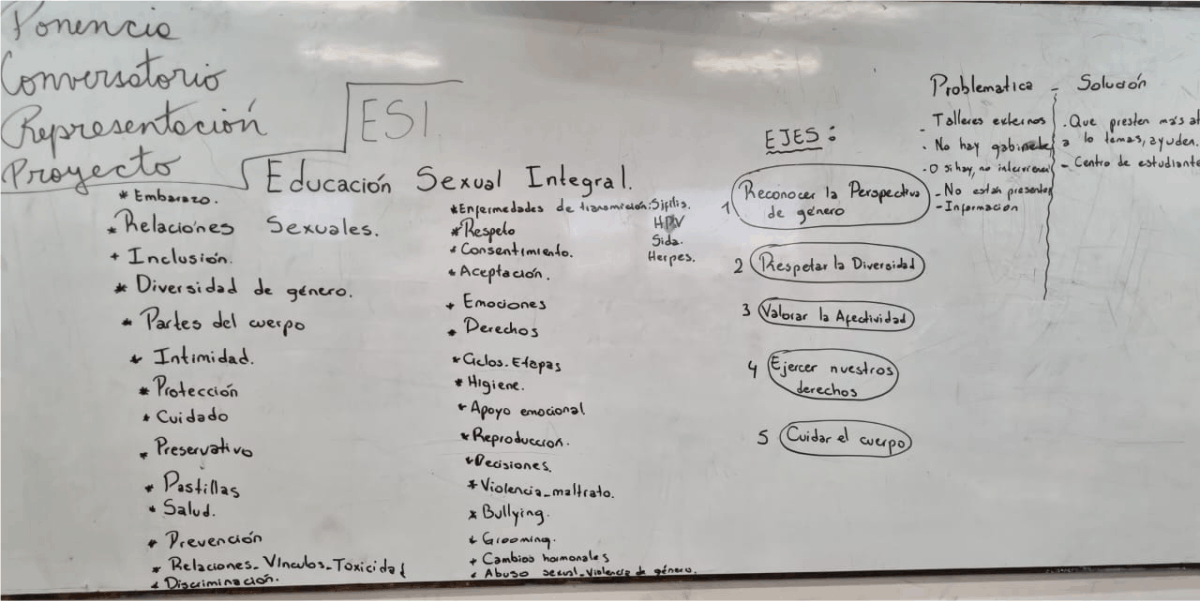 Ponencia
Conversatorio
Representación
Proyecto
ESI
Educación Sexual Integral.
* Embarazo.
* Relaciones Sexuales.
* Inclusión.
* Diversidad de género.
* Partes del cuerpo
* Intimidad.
* Protección
* Cuidado
* Preservativo
* Pastillas
* Salud.
* Prevención
* Relaciones_Vínculos_Toxicidad
* Discriminación.
* Enfermedades de transmisión: Sífilis.
HPV
Sida.
Herpes.
* Respeto
* Consentimiento.
* Aceptación.
* Emociones
* Derechos
* Ciclos. Etapas
* Higiene.
* Apoyo emocional
* Reproducción.
* Decisiones.
* Violencia_maltrato.
* Bullying.
* Grooming.
* Cambios hormonales
* Abuso sexual_Violencia de género.
EJES:
1 Reconocer la Perspectiva
de género
2 Respetar la Diversidad
3 Valorar la Afectividad
4 Ejercer nuestros
derechos
5 Cuidar el cuerpo
Problematica - Solución
- Talleres externos
- No hay gabinete
- O si hay, no intervienen
- No estan presentes
- Información
. Que presten más
a lo temas, ayuden.
- Centro de estudiante